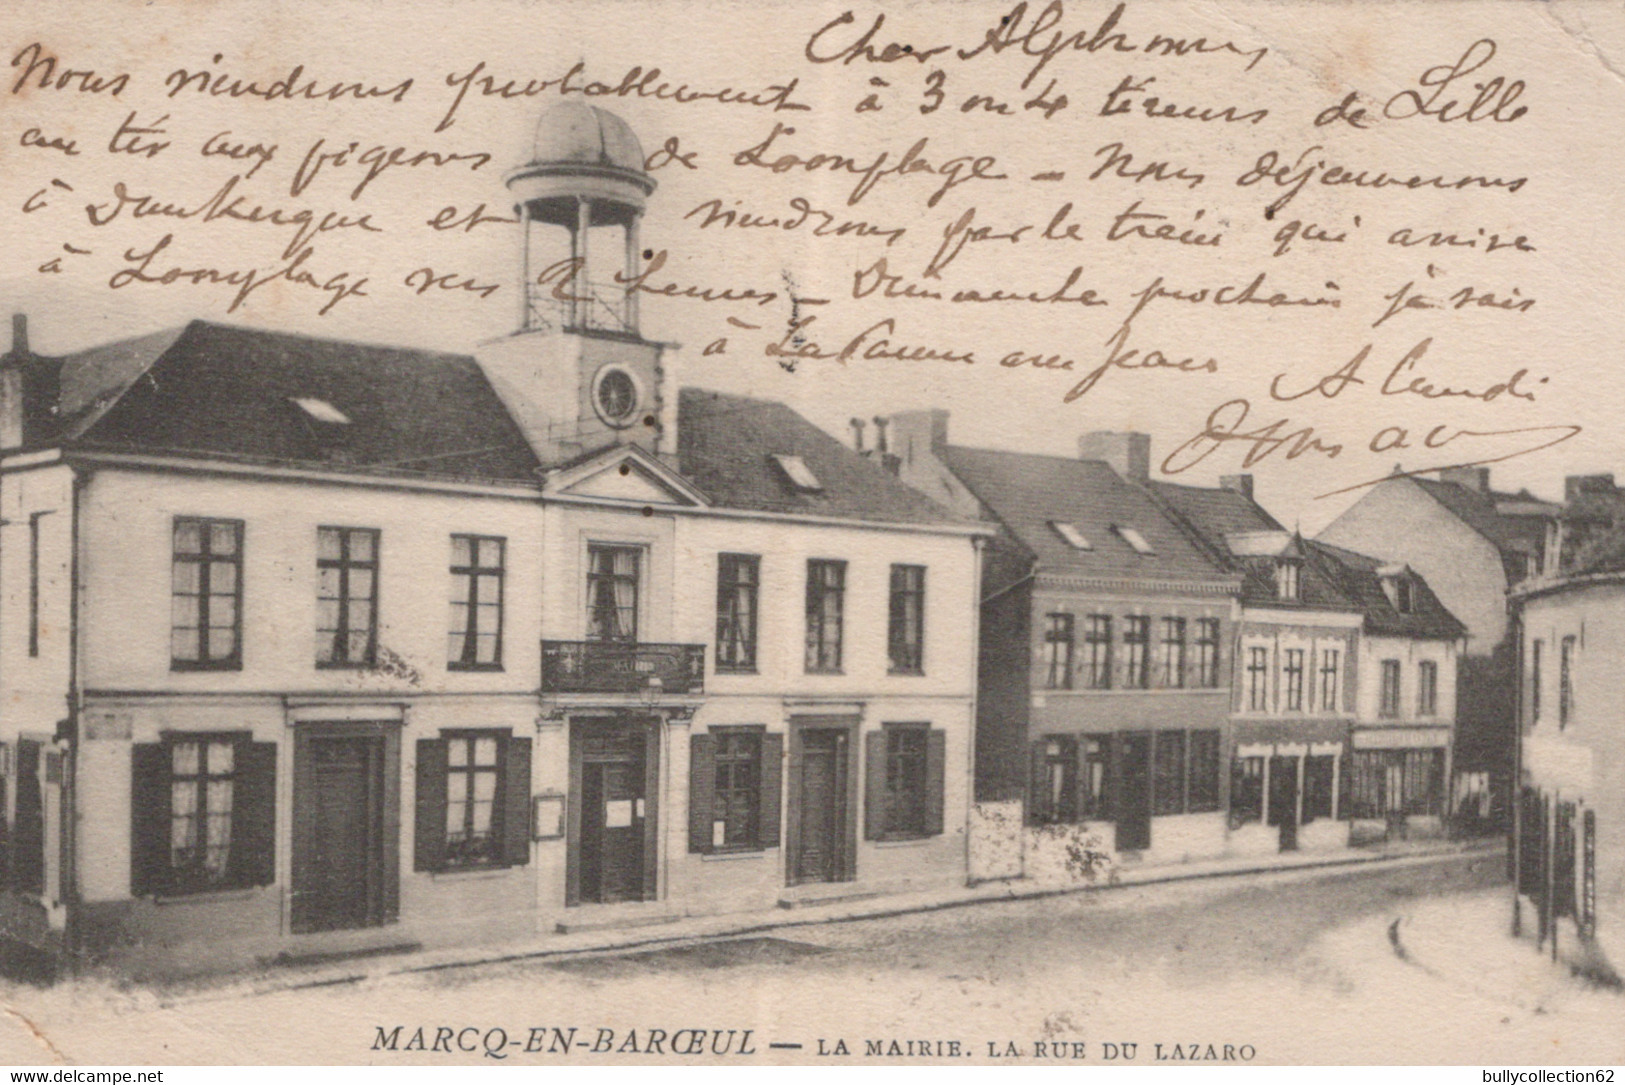 Cher Alphonse
Nous viendrons probablement à 3 ou 4 tireurs de Lille
au tir aux pigeons de Loonplage - Nous déjeunerons
à Dunkerque et viendrons par le train qui arrive
à Loonplage vers 2 heures - Dimanche prochain je vais
à La au
A Lundi
MAIRIE
MARCQ-EN-BARŒUL — LA MAIRIE. LA RUE DU LAZARO
bullycollection62